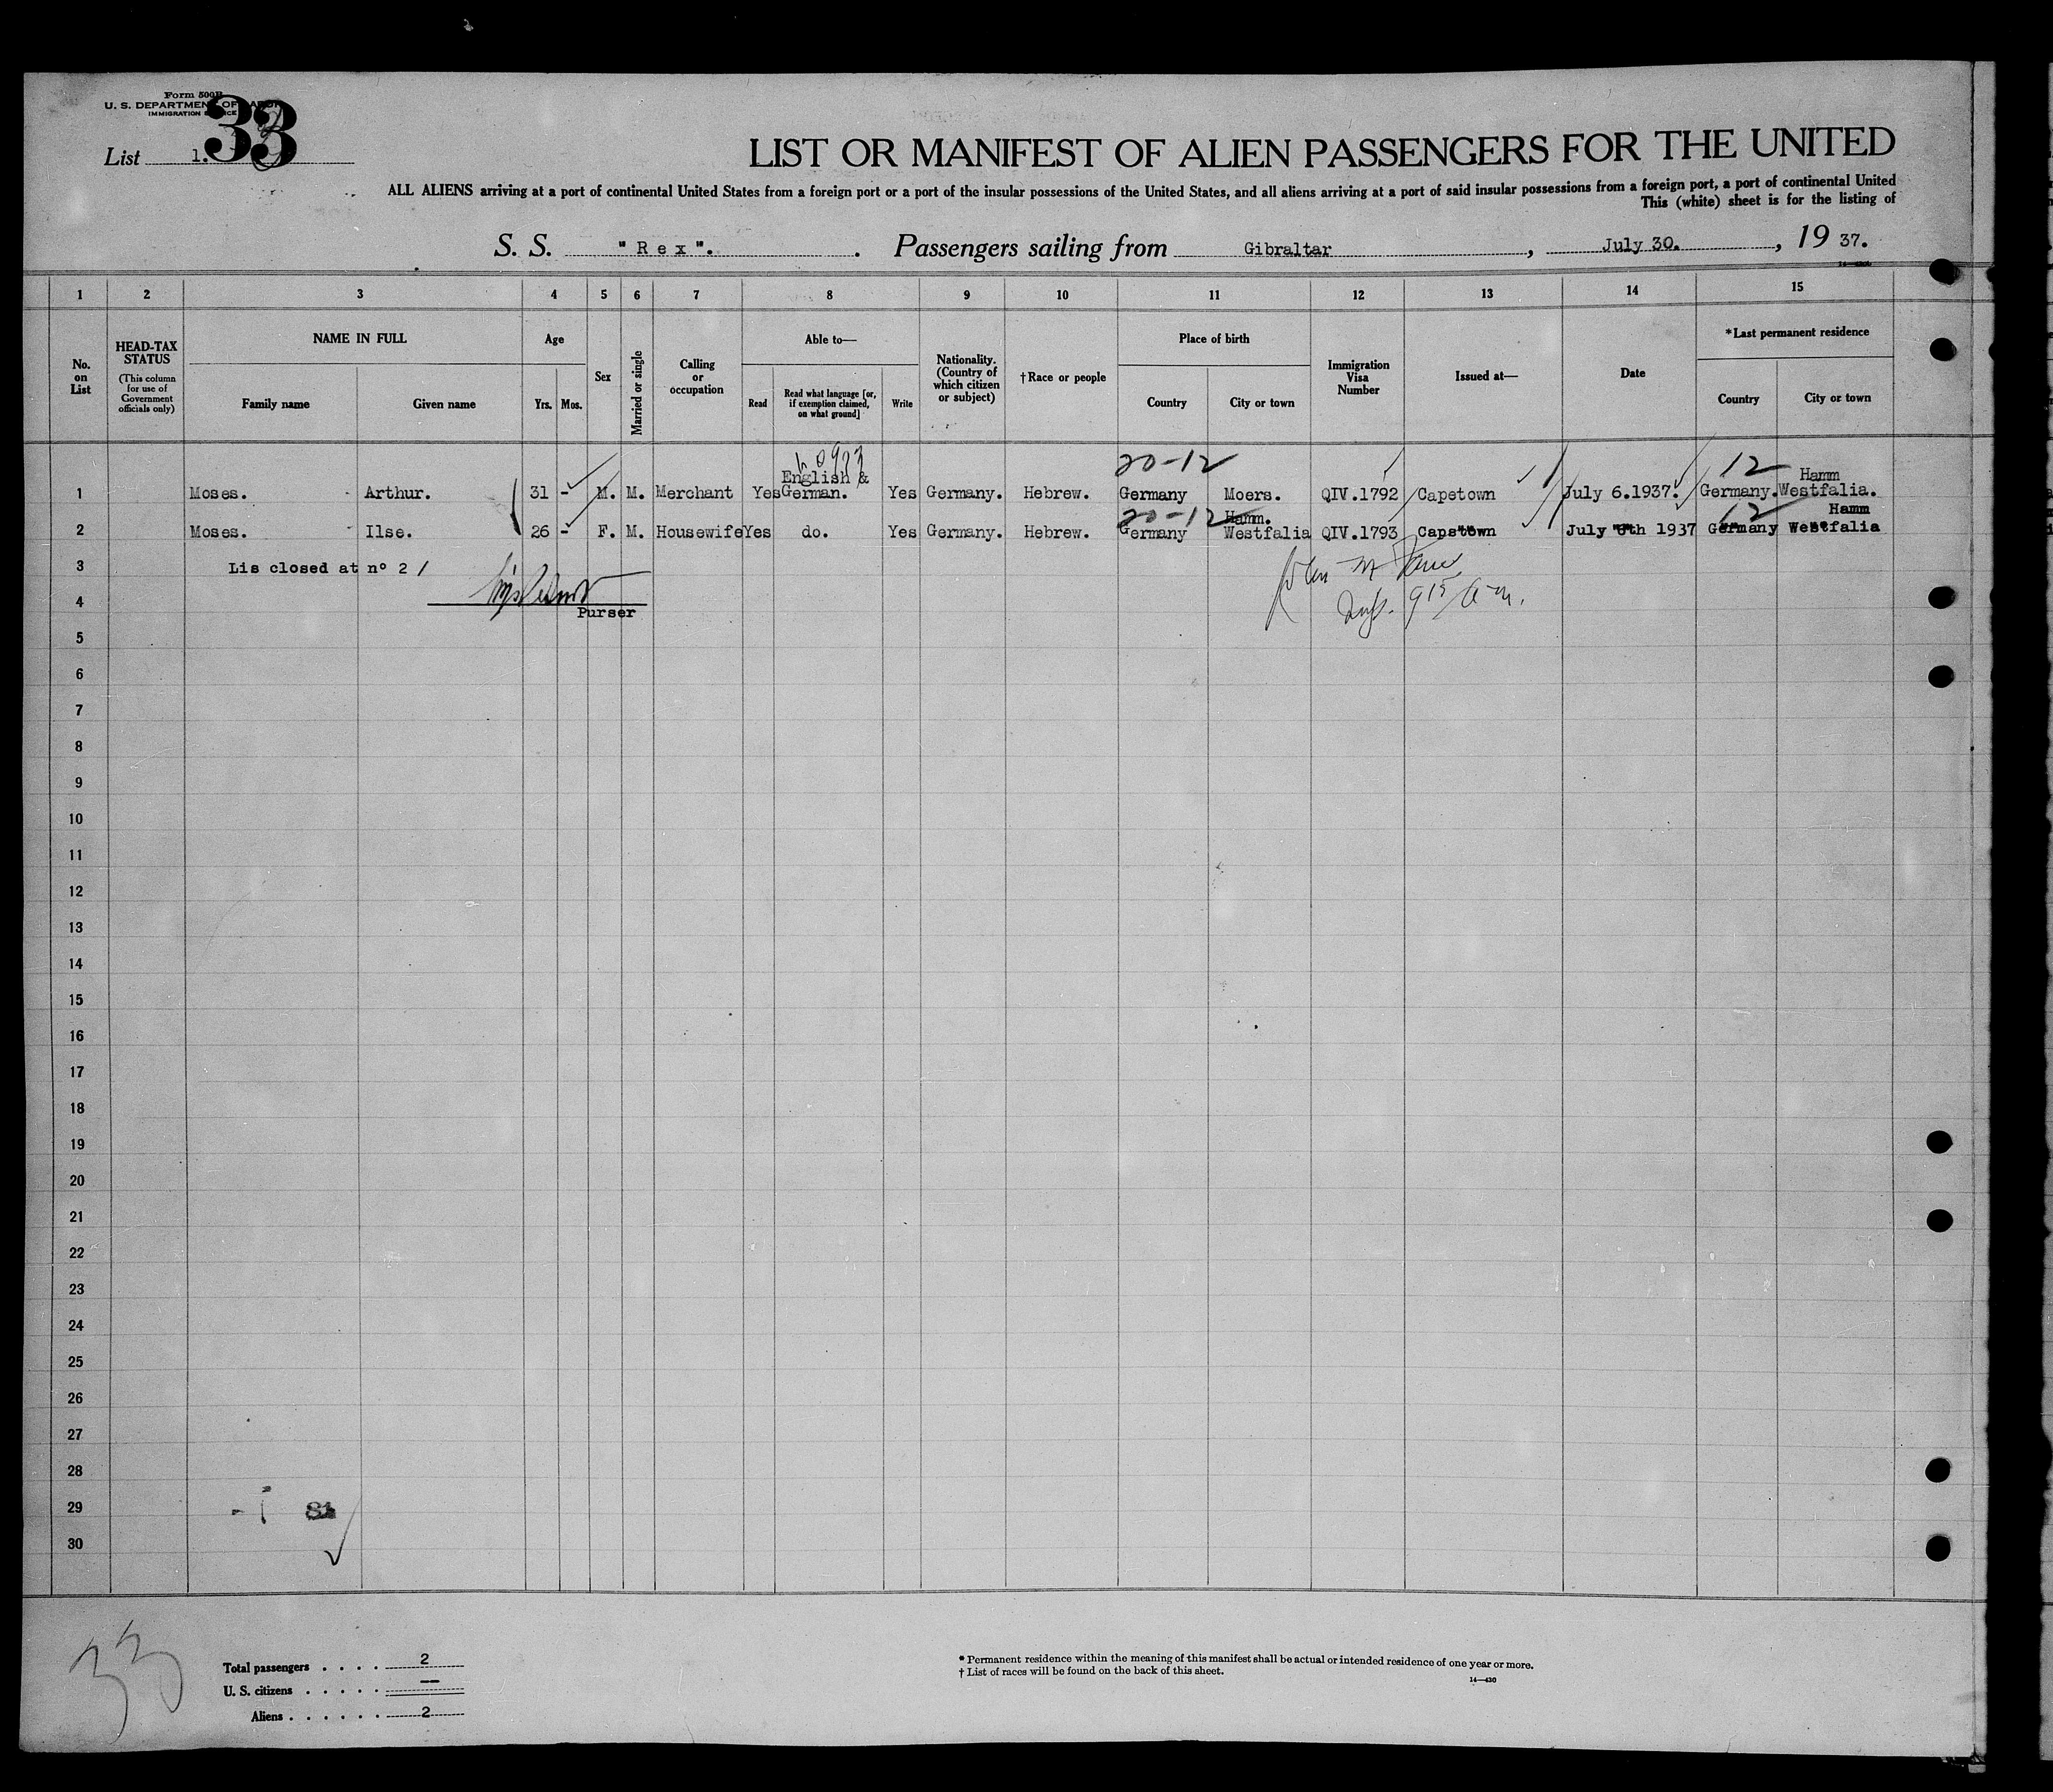 Form 500B
U. S. DEPARTMENT OF LABOR
IMMIGRATION SERVICE
List 1. 33
LIST OR MANIFEST OF ALIEN PASSENGERS FOR THE UNITED
ALL ALIENS arriving at a port of continental United States from a foreign port or a port of the insular possessions of the United States, and all aliens arriving at a port of said insular possessions from a foreign port, a port of continental United
This (white) sheet is for the listing of
S. S. "Rex". . Passengers sailing from Gibraltar , July 30. , 19 37.
1 2 3 4 5 6 7 8 9 10 11 12 13 14 15
No. on List
HEAD-TAX STATUS
(This column for use of Government officials only)
NAME IN FULL
Family name Given name
Age
Yrs. Mos.
Sex
Married or single
Calling or occupation
Able to—
Read Read what language [or, if exemption claimed, on what ground] Write
Nationality. (Country of which citizen or subject)
†Race or people
Place of birth
Country City or town
Immigration Visa Number
Issued at—
Date
*Last permanent residence
Country City or town
20-12 12
English & Hamm
1 Moses. Arthur. 31 - M. M. Merchant Yes German. Yes Germany. Hebrew. Germany Moers. QIV.1792 Capetown July 6.1937. Germany. Westfalia.
20-12 Hamm. 12 Hamm
2 Moses. Ilse. 26 - F. M. Housewife Yes do. Yes Germany. Hebrew. Germany Westfalia QIV.1793 Capstown July 6th 1937 Germany Westfalia
3 Lis closed at nº 2 /
4 Purser
5
6
7
8
9
10
11
12
13
14
15
16
17
18
19
20
21
22
23
24
25
26
27
28
29
30
33
Total passengers . . . . 2
U. S. citizens . . . . . —
Aliens . . . . . . 2
* Permanent residence within the meaning of this manifest shall be actual or intended residence of one year or more.
† List of races will be found on the back of this sheet.
14—430